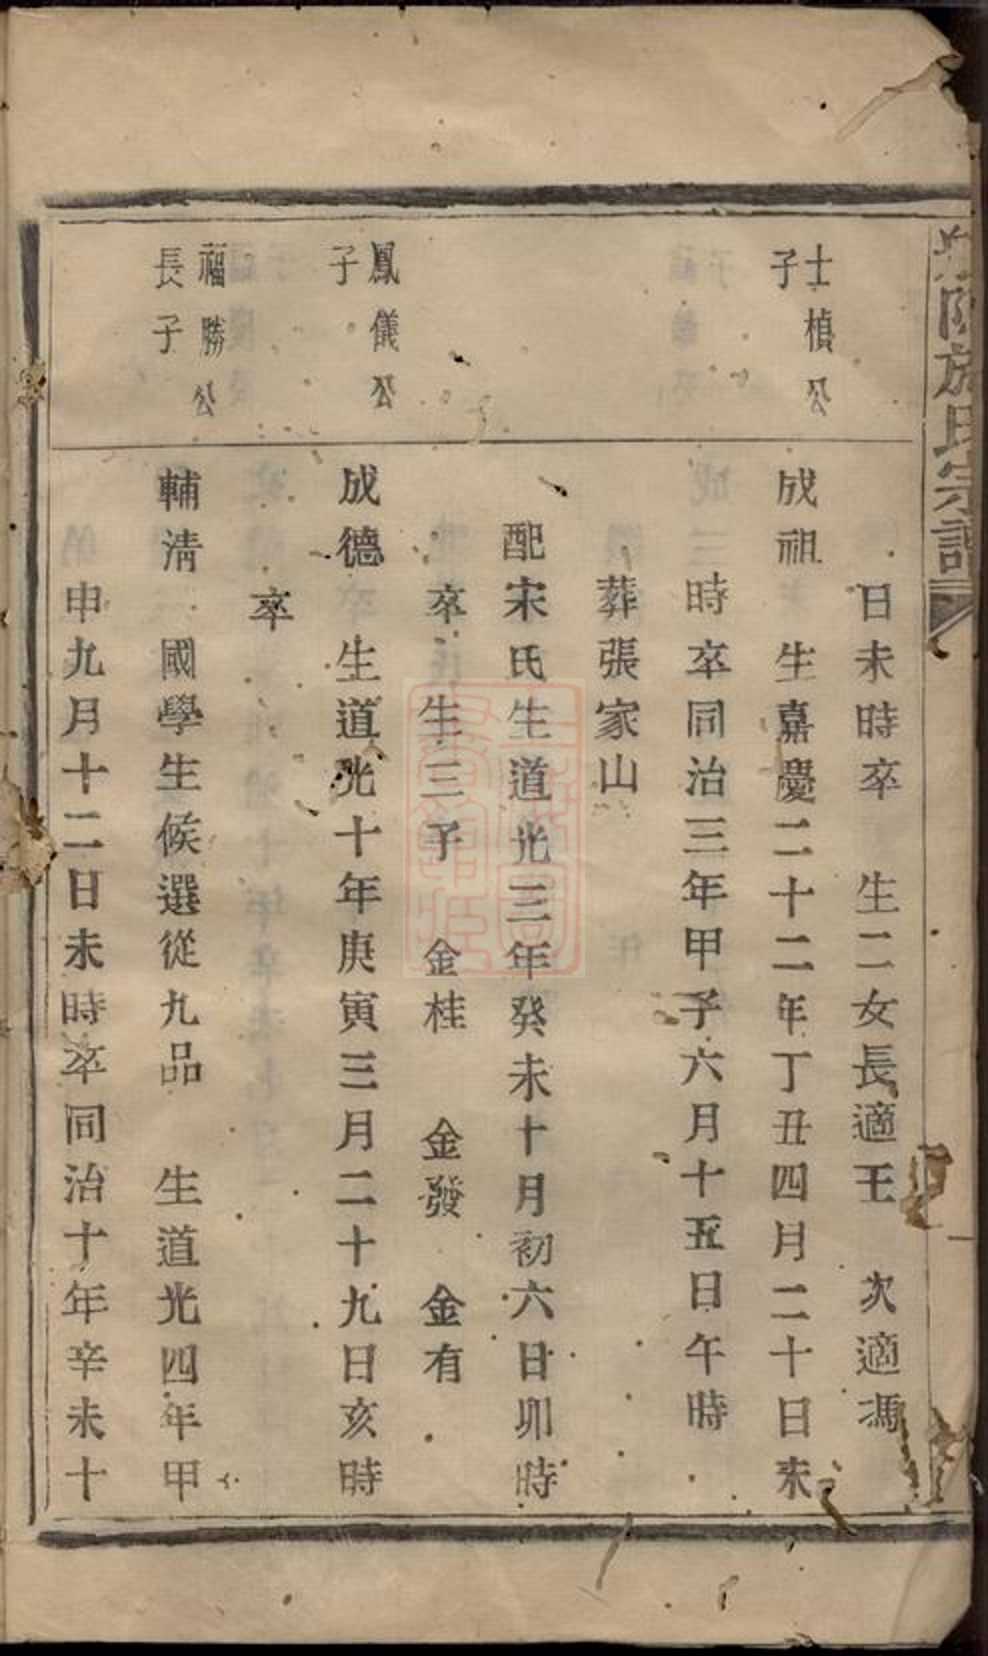 施氏宗譜
日未時卒 生二女長適王 次適馮
士楨公
子
成祖 生嘉慶二十二年丁丑四月二十日未
時卒同治三年甲子六月十五日午時
葬張家山
配宋氏生道光三年癸未十月初六日卯時
卒 生三子 金桂 金發 金有
鳳儀公
子
成德 生道光十年庚寅三月二十九日亥時
卒
福勝公
長子
輔清 國學生候選從九品 生道光四年甲
申九月十二日未時卒同治十年辛未十